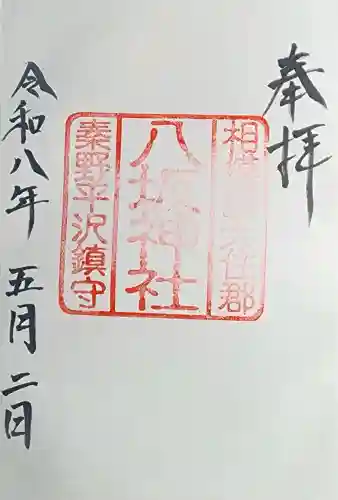 奉拝
相模國大住郡
八坂神社
秦野平沢鎮守
令和八年 五月二日